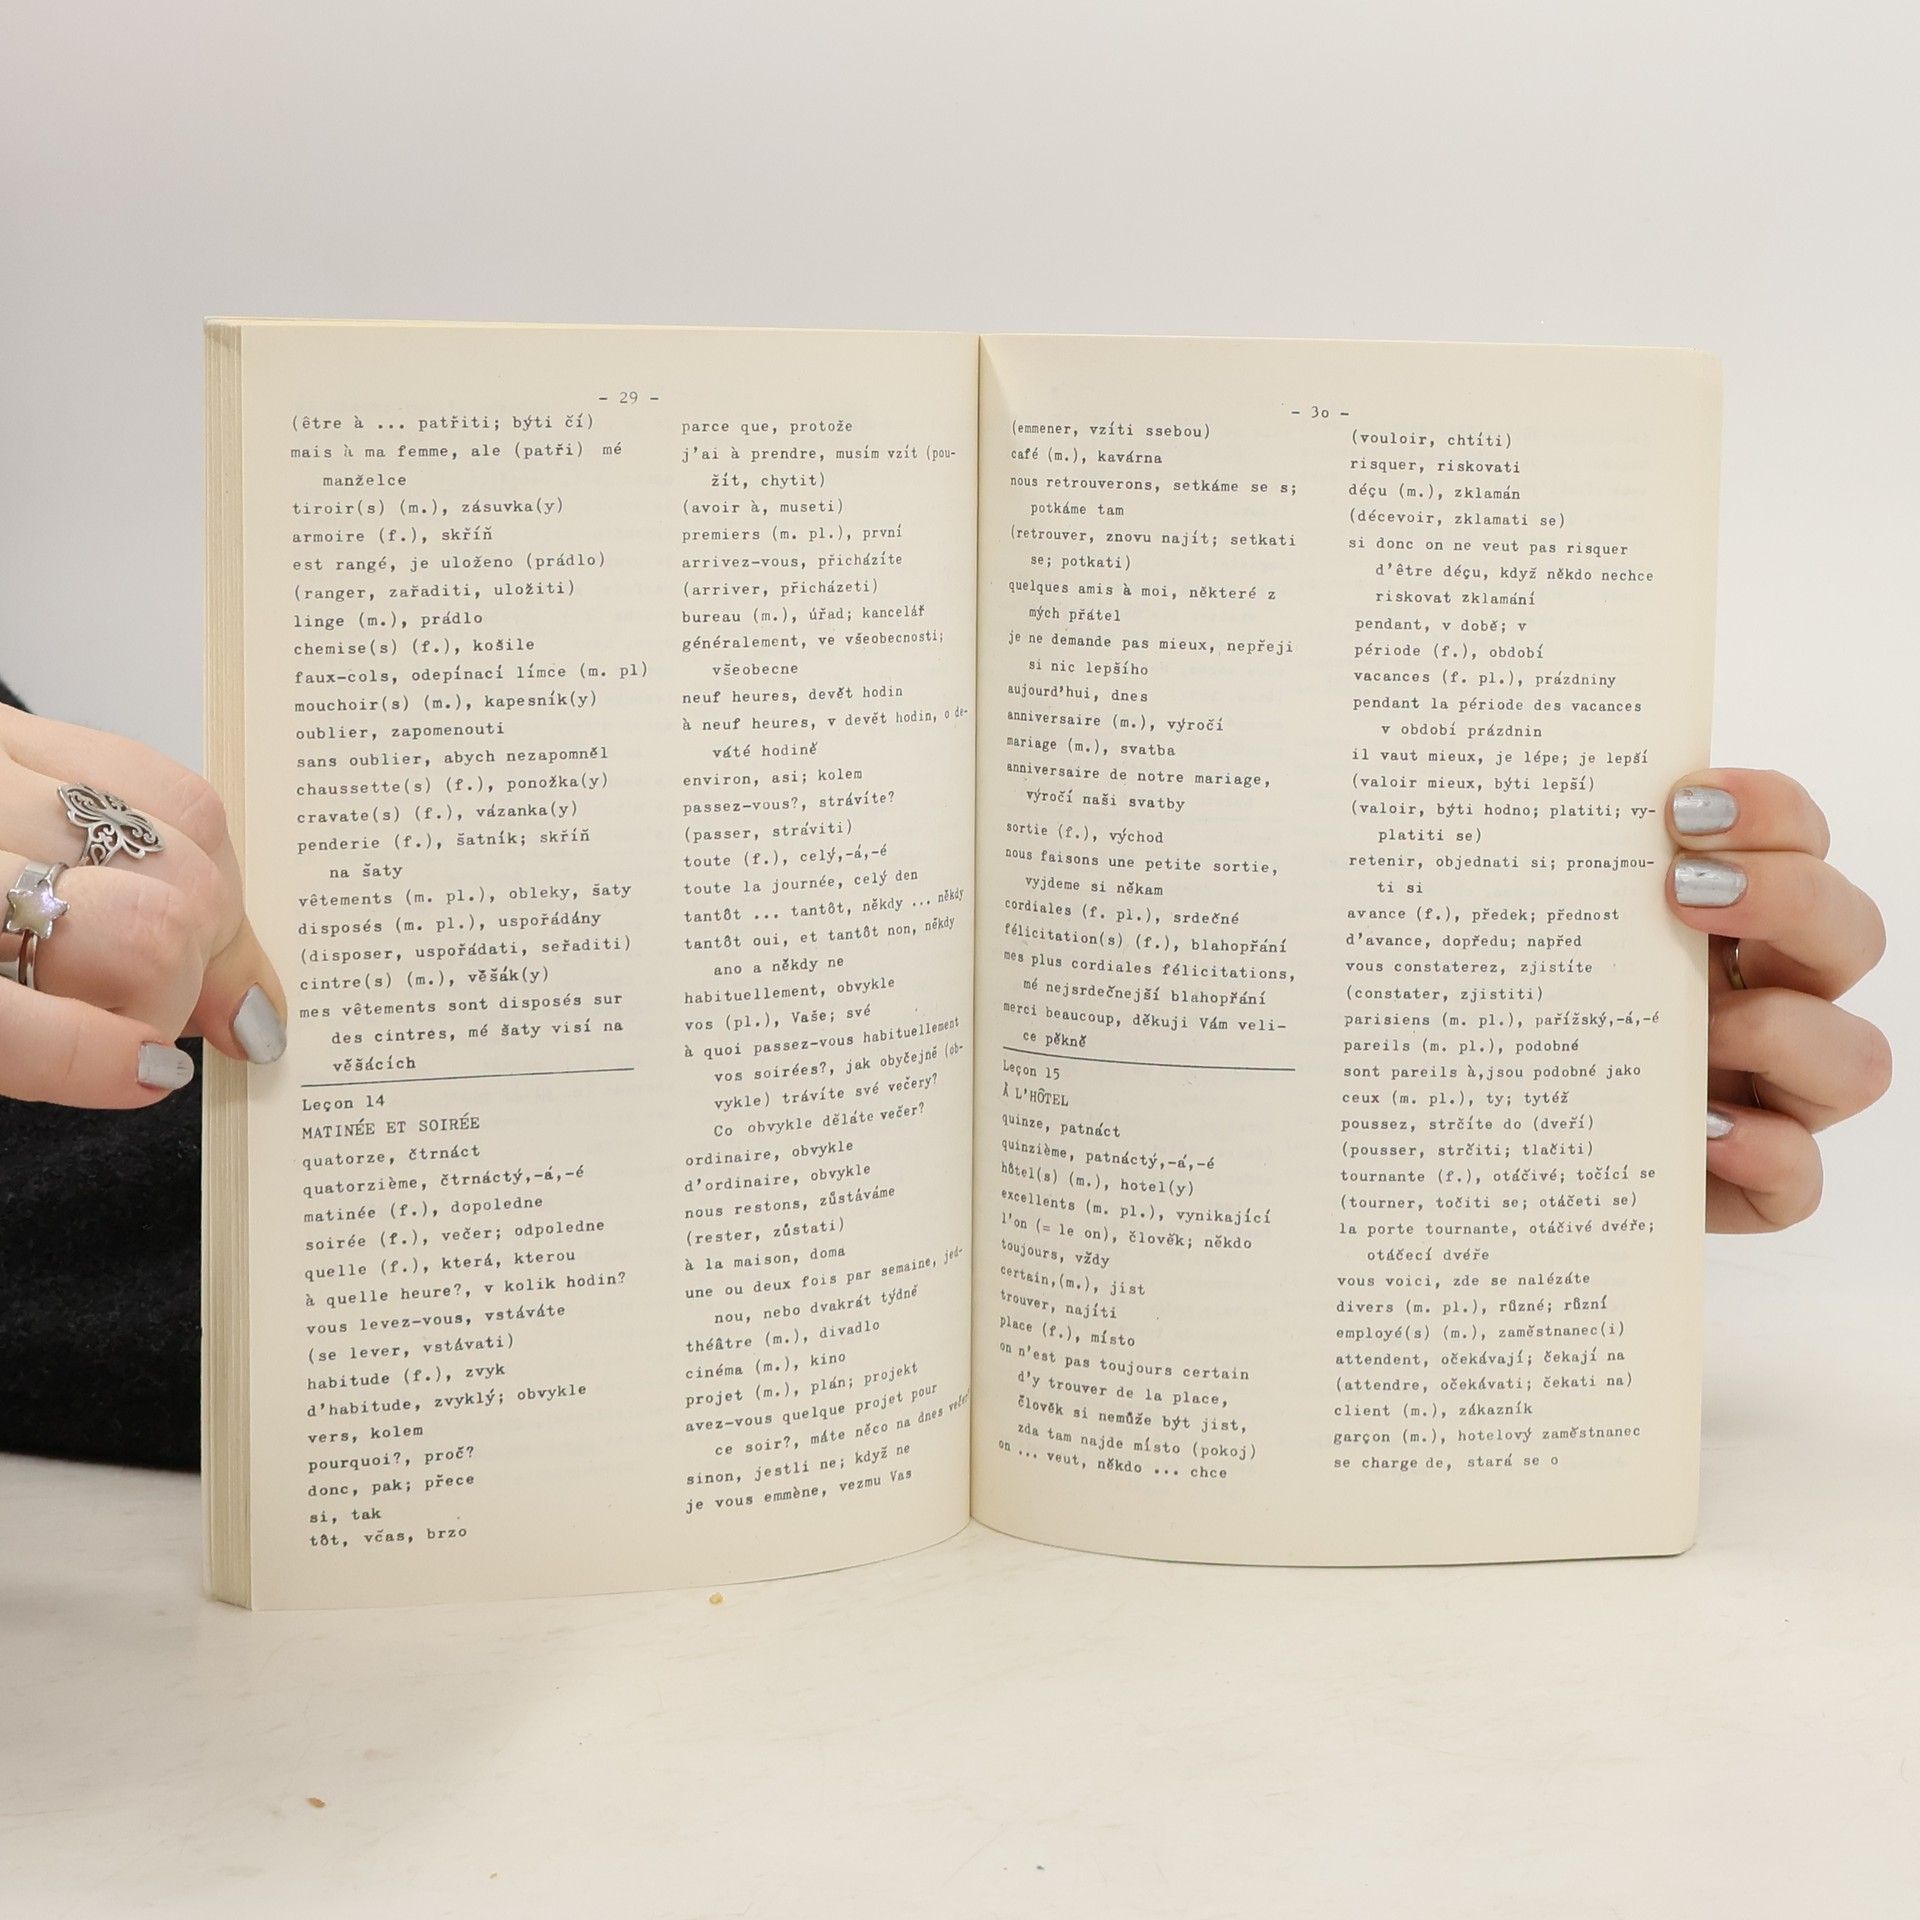 - 29 -
(être à ... patřiti; býti čí)
mais à ma femme, ale (patři) mé
manželce
tiroir(s) (m.), zásuvka(y)
armoire (f.), skříň
est rangé, je uloženo (prádlo)
(ranger, zařaditi, uložiti)
linge (m.), prádlo
chemise(s) (f.), košile
faux-cols, odepínací límce (m. pl)
mouchoir(s) (m.), kapesník(y)
oublier, zapomenouti
sans oublier, abych nezapomněl
chaussette(s) (f.), ponožka(y)
cravate(s) (f.), vázanka(y)
penderie (f.), šatník; skříň
na šaty
vêtements (m. pl.), obleky, šaty
disposés (m. pl.), uspořádány
(disposer, uspořádati, seřaditi)
cintre(s) (m.), věšák(y)
mes vêtements sont disposés sur
des cintres, mé šaty visí na
věšácích
Leçon 14
MATINÉE ET SOIRÉE
quatorze, čtrnáct
quatorzième, čtrnáctý,-á,-é
matinée (f.), dopoledne
soirée (f.), večer; odpoledne
quelle (f.), která, kterou
à quelle heure?, v kolik hodin?
vous levez-vous, vstáváte
(se lever, vstávati)
habitude (f.), zvyk
d'habitude, zvyklý; obvykle
vers, kolem
pourquoi?, proč?
donc, pak; přece
si, tak
tôt, včas, brzo
parce que, protože
j'ai à prendre, musím vzít (pou-
žít, chytit)
(avoir à, museti)
premiers (m. pl.), první
arrivez-vous, přicházíte
(arriver, přicházeti)
bureau (m.), úřad; kancelář
généralement, ve všeobecnosti;
všeobecne
neuf heures, devět hodin
à neuf heures, v devět hodin, o de-
váté hodině
environ, asi; kolem
passez-vous?, strávíte?
(passer, stráviti)
toute (f.), celý,-á,-é
toute la journée, celý den
tantôt ... tantôt, někdy ... někdy
tantôt oui, et tantôt non, někdy
ano a někdy ne
habituellement, obvykle
vos (pl.), Vaše; své
à quoi passez-vous habituellement
vos soirées?, jak obyčejně (ob-
vykle) trávíte své večery?
Co obvykle děláte večer?
ordinaire, obvykle
d'ordinaire, obvykle
nous restons, zůstáváme
(rester, zůstati)
à la maison, doma
une ou deux fois par semaine, jed-
nou, nebo dvakrát týdně
théâtre (m.), divadlo
cinéma (m.), kino
projet (m.), plán; projekt
avez-vous quelque projet pour
ce soir?, máte něco na dnes večer?
sinon, jestli ne; když ne
je vous emmène, vezmu Vas
- 3o -
(emmener, vzíti ssebou)
café (m.), kavárna
nous retrouverons, setkáme se s;
potkáme tam
(retrouver, znovu najít; setkati
se; potkati)
quelques amis à moi, některé z
mých přátel
je ne demande pas mieux, nepřeji
si nic lepšího
aujourd'hui, dnes
anniversaire (m.), výročí
mariage (m.), svatba
anniversaire de notre mariage,
výročí naši svatby
sortie (f.), východ
nous faisons une petite sortie,
vyjdeme si někam
cordiales (f. pl.), srdečné
félicitation(s) (f.), blahopřání
mes plus cordiales félicitations,
mé nejsrdečnejší blahopřání
merci beaucoup, děkuji Vám veli-
ce pěkně
Leçon 15
À L'HÔTEL
quinze, patnáct
quinzième, patnáctý,-á,-é
hôtel(s) (m.), hotel(y)
excellents (m. pl.), vynikající
l'on (= le on), člověk; někdo
toujours, vždy
certain,(m.), jist
trouver, najíti
place (f.), místo
on n'est pas toujours certain
d'y trouver de la place,
člověk si nemůže být jist,
zda tam najde místo (pokoj)
on ... veut, někdo ... chce
(vouloir, chtíti)
risquer, riskovati
déçu (m.), zklamán
(décevoir, zklamati se)
si donc on ne veut pas risquer
d'être déçu, když někdo nechce
riskovat zklamání
pendant, v době; v
période (f.), období
vacances (f. pl.), prázdniny
pendant la période des vacances
v období prázdnin
il vaut mieux, je lépe; je lepší
(valoir mieux, býti lepší)
(valoir, býti hodno; platiti; vy-
platiti se)
retenir, objednati si; pronajmou-
ti si
avance (f.), předek; přednost
d'avance, dopředu; napřed
vous constaterez, zjistíte
(constater, zjistiti)
parisiens (m. pl.), pařížský,-á,-é
pareils (m. pl.), podobné
sont pareils à,jsou podobné jako
ceux (m. pl.), ty; tytéž
poussez, strčíte do (dveří)
(pousser, strčiti; tlačiti)
tournante (f.), otáčivé; točící se
(tourner, točiti se; otáčeti se)
la porte tournante, otáčivé dvéře;
otáčecí dvéře
vous voici, zde se nalézáte
divers (m. pl.), různé; různí
employé(s) (m.), zaměstnanec(i)
attendent, očekávají; čekají na
(attendre, očekávati; čekati na)
client (m.), zákazník
garçon (m.), hotelový zaměstnanec
se charge de, stará se o